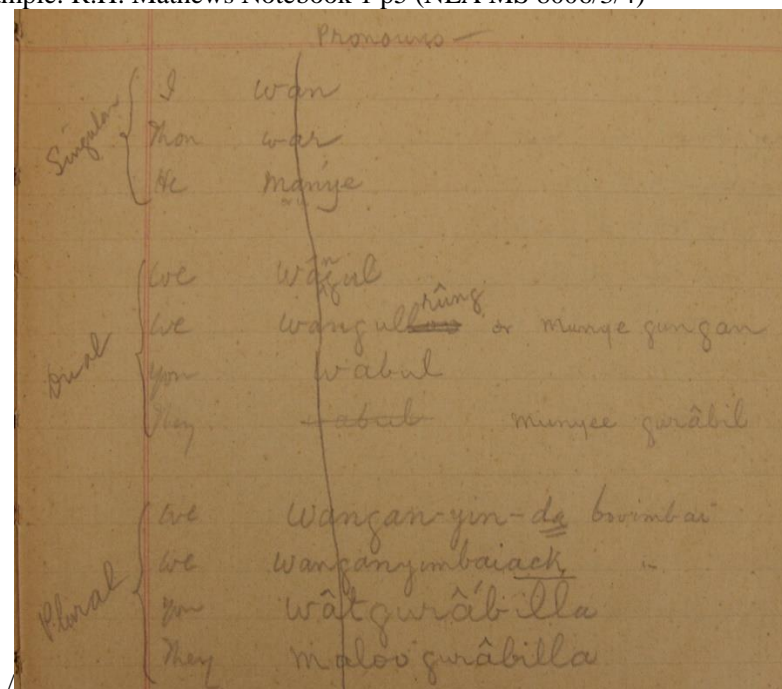 mple: R.H. Mathews Notebook 1 p5 (NLA MS 8006/3/4)
Pronouns —
Singular
I wan
Thou war
He
Dual
We
We wangul rûng or munye gungan
You wabul
They wabul munyee gurâbil
Plural
We Wangan-yin-da
We Wanganyimbaiack "
You wâtgurâbilla
They maloo gurâbilla
/